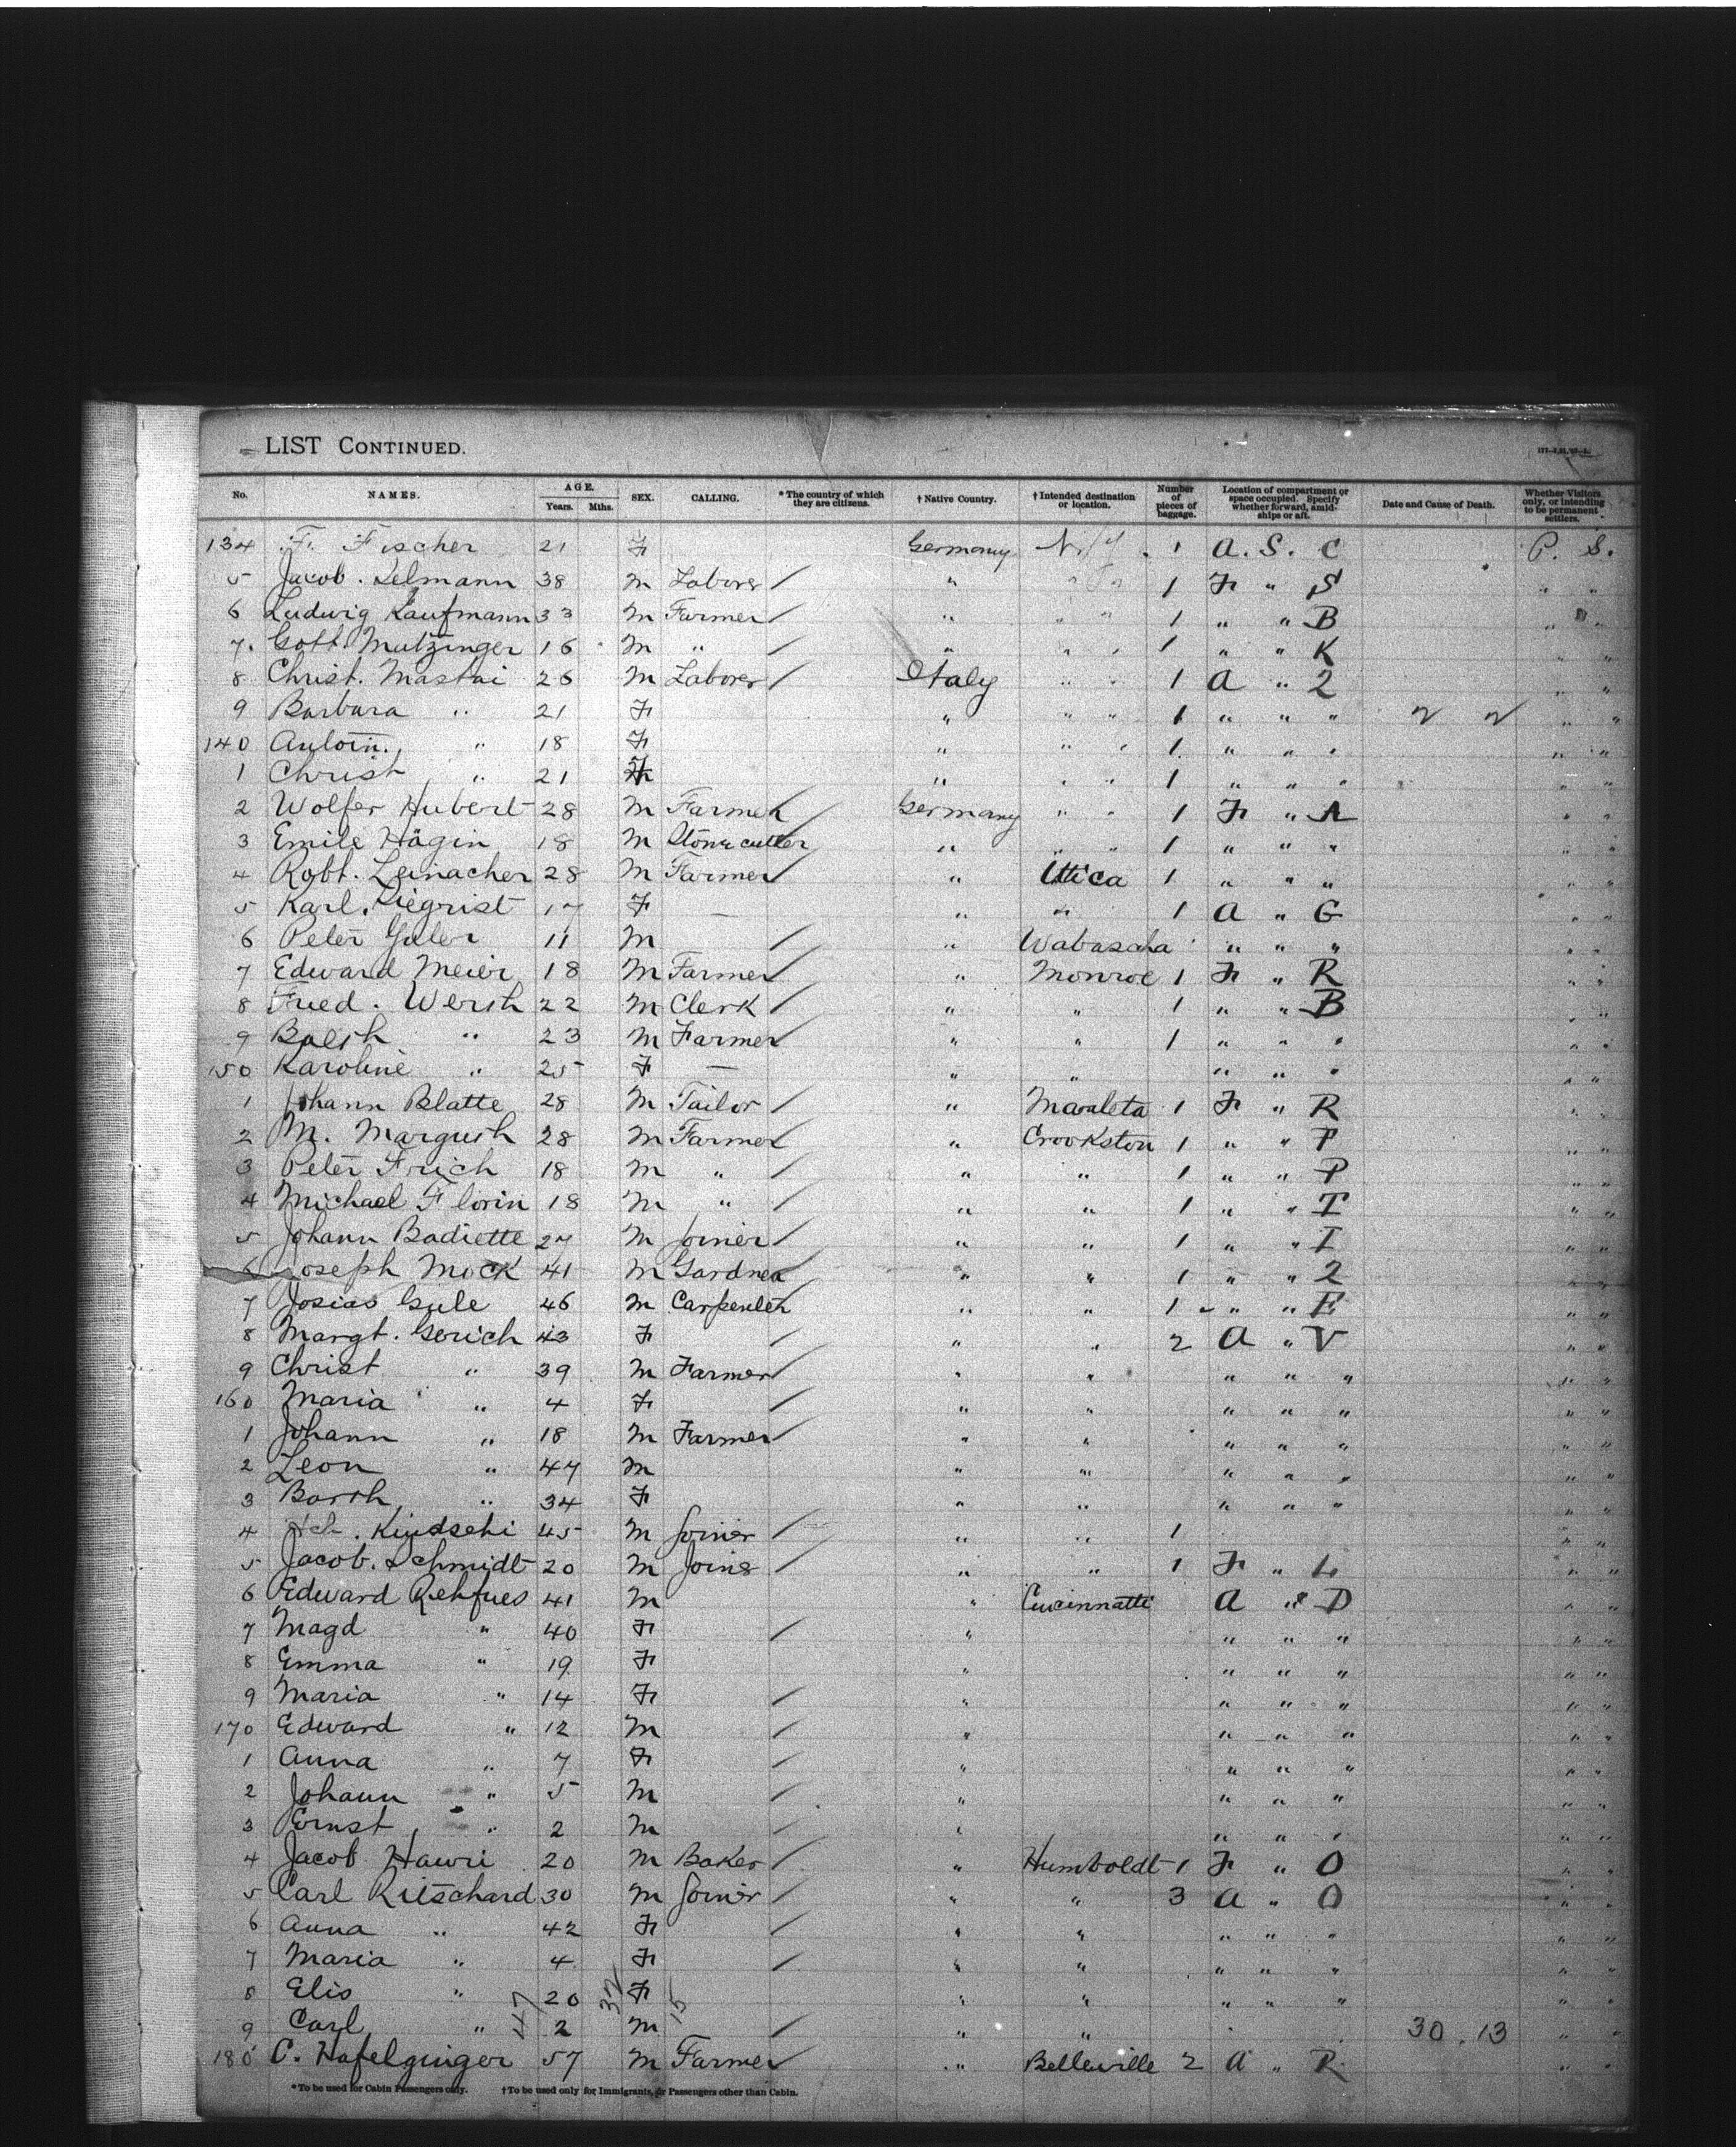 LIST CONTINUED.
No. NAMES. AGE. Years. Mths. SEX. CALLING. * The country of which they are citizens. † Native Country. † Intended destination or location. Number of pieces of baggage. Location of compartment or space occupied. Specify whether forward, amidships or aft. Date and Cause of Death. Whether Visitors only, or intending to be permanent settlers.
134 F. Fischer 21 F Germany 1 A. S. C P. S.
5 Jacob. Selmann 38 M Laborer / " " " 1 F " S " "
6 Ludwig Kaufmann 33 M Farmer / " " " 1 " " B " "
7. Gott. Mutzinger 16 M " / " " " 1 " " K " "
8 Christ. Mastai 26 M Laborer / Italy " " 1 A " 2 " "
9 Barbara " 21 F " " " 1 " " " " "
140 " 18 F " " " 1 " " " " "
1 Christ " 21 F " " " 1 " " " " "
2 Wolfer Hubert 28 M Farmer / Germany " " 1 F " A " "
3 Emile Hägin 18 M Stonecutter / " " " 1 " " " " "
4 Robt. Leinacher 28 M Farmer / " Utica 1 " " " " "
5 Karl. Siegrist 17 F — " " 1 A " G " "
6 Peter Galer 11 M / " Wabascha " " " " "
7 Edward Meier 18 M Farmer / " Monroe 1 F " R " "
8 Fred. Wersh 22 M Clerk / " " 1 " " B " "
9 " 23 M Farmer / " " 1 " " " " "
150 Karoline " 25 F — " " " " " " "
1 Johann Blatte 28 M Tailor / " 1 F " R " "
2 M. Margush 28 M Farmer / " Crookston 1 " " P " "
3 Peter Frich 18 M " / " " 1 " " P " "
4 Michael Florin 18 M " / " " 1 " " I " "
5 Johann Badiette 27 M Joiner / " " 1 " " I " "
6 Joseph Mock 41 M Gardner / " " 1 " " 2 " "
7 Josias Gule 46 M Carpenter / " " 1 " " E " "
8 Margt. Gerich 43 F / " " 2 A " V " "
9 Christ " 39 M Farmer / " " " " " " "
160 Maria " 4 F / " " " " " " "
1 Johann " 18 M Farmer / " " " " " " "
2 Leon " 47 M " " " " " " "
3 Barth. " 34 F " " " " " " "
4 Kindschi 45 M Joiner / " " 1 " "
5 Jacob. Schmidt 20 M Joine / " " 1 F " L " "
6 Edward Rehfues 41 M " Cincinnatti A " D " "
7 Magd " 40 F / " " " " " "
8 Emma " 19 F " " " " " "
9 Maria " 14 F / " " " " " "
170 Edward " 12 M / " " " " " "
1 Anna " 7 F / " " " " " "
2 Johann " 5 M / " " " " " "
3 Ernst " 2 M / " " " " " "
4 Jacob Hawri 20 M Baker / " Humboldt 1 F " O " "
5 Carl Ritschard 30 M Joiner / " " 3 A " O " "
6 Anna " 42 F / " " " " " " "
7 Maria " 4 F / " " " " " " "
8 Elis " 20 F " " " " " " "
9 Carl " 2 M / " " 30.13 " "
47 32 15
180 C. Hafelginger 57 M Farmer / " Belleville 2 A " R " "
* To be used for Cabin Passengers only. † To be used only for Immigrants, or Passengers other than Cabin.